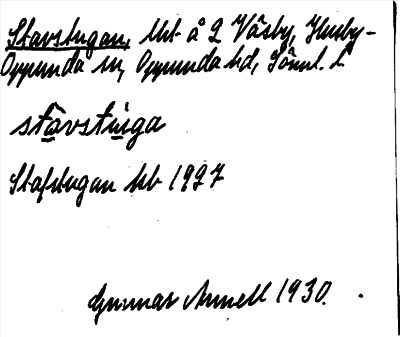 Stavstugan, lht å 2 Väsby, Husby-
Oppunda sn, Oppunda hd, Söml. l.
stavstuga
Stafstugan kb 1927
Gunnar Annell 1930.